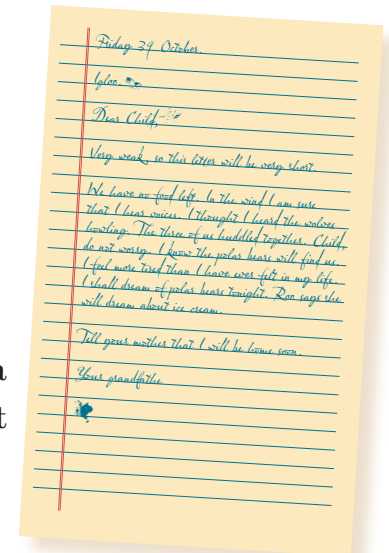 Friday 39 October.
Igloo.
Dear Child,
Very weak, so this letter will be very short.
We have no food left. In the wind I am sure
that I hear voices. I thought I heard the wolves
howling. The three of us huddled together. Child,
do not worry. I know the polar bears will find us.
I feel more tired than I have ever felt in my life.
I shall dream of polar bears tonight. Roo says she
will dream about ice cream.
Tell your mother that I will be home soon.
Your grandfathe